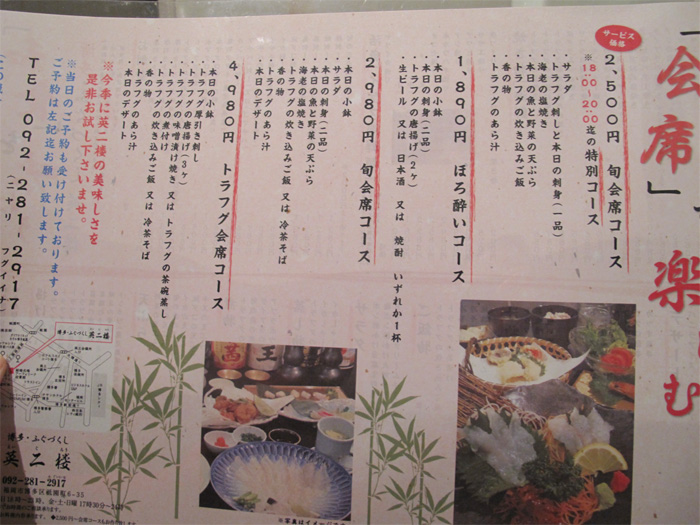 「会席」
楽しむ
サービス
価格
2,500円 旬会席コース
※18:00~20:00迄の特別コース
・サラダ
・トラフグ刺しと本日の刺身(一品)
・海老の塩焼き
・本日の魚と野菜の天ぷら
・トラフグの炊き込みご飯
・香の物
・トラフグのあら汁
1,890円 ほろ酔いコース
・本日の小鉢
・本日の刺身(二品)
・トラフグの唐揚げ(2ヶ)
・生ビール 又は 日本酒 又は 焼酎 いずれか1杯
2,980円 旬会席コース
・本日の小鉢
・サラダ
・本日の刺身(二品)
・本日の魚と野菜の天ぷら
・海老の塩焼き
・トラフグの炊き込みご飯 又は 冷茶そば
・香の物
・トラフグのあら汁
・本日のデザート
4,980円 トラフグ会席コース
・本日の小鉢
・トラフグ厚引き刺し
・トラフグの唐揚げ(3ヶ)
・トラフグの味噌漬け焼き 又は トラフグの茶碗蒸し
・トラフグの煮付け
・トラフグの炊き込みご飯 又は 冷茶そば
・香の物
・トラフグのあら汁
・本日のデザート
※今季に英二楼の美味しさを
是非お試し下さいませ。
※当日のご予約も受け付けております。
ご予約は左記迄お願い致します。
TEL 092-281-2917
(ニヤリ フグイイナ)
博多・ふぐづくし
英二楼
博多・ふぐづくし
英二楼
092-281-2917
※写真はイメージ